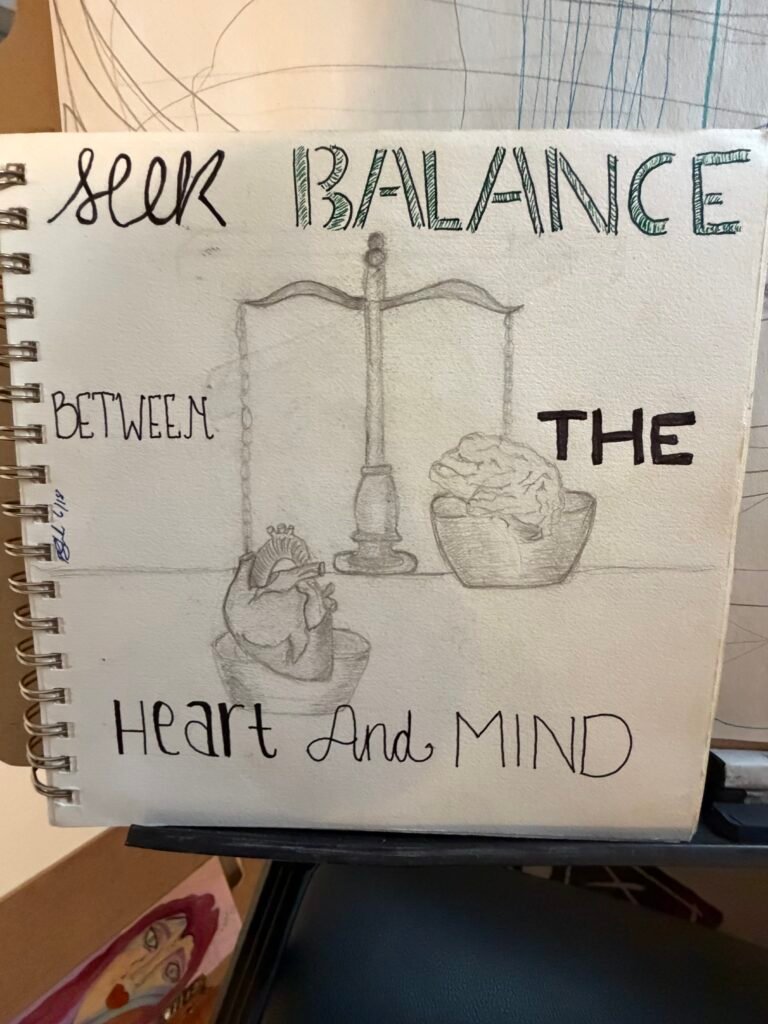 Seek BALANCE
BETWEEN THE
6/18
Heart And MIND